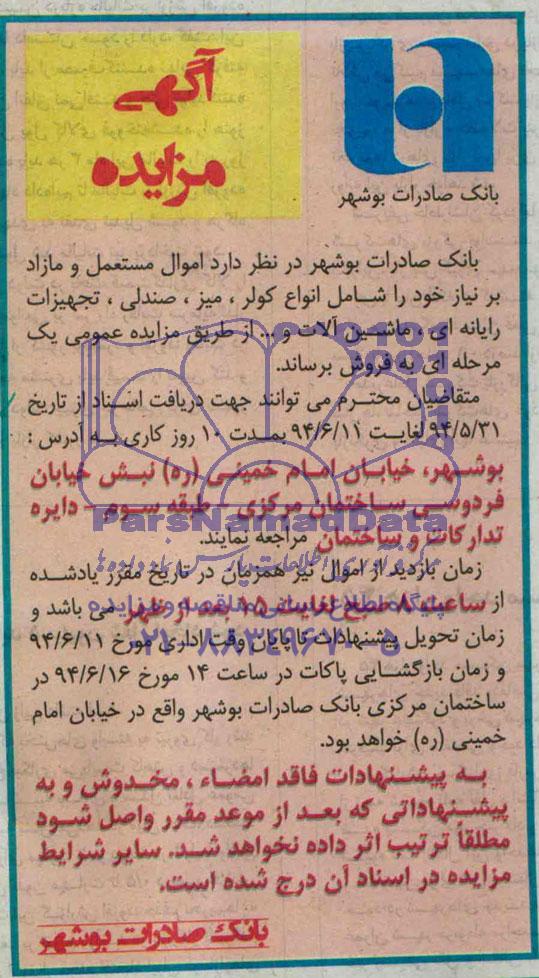 آگهی
مزایده
بانک صادرات بوشهر
بانک صادرات بوشهر در نظر دارد اموال مستعمل و مازاد
بر نیاز خود را شامل انواع کولر ، میز ، صندلی ، تجهیزات
رایانه ای ، ماشین آلات و ... از طریق مزایده عمومی یک
مرحله ای به فروش برساند.
متقاضیان محترم می توانند جهت دریافت اسناد از تاریخ
۹۴/۵/۳۱ لغایت ۹۴/۶/۱۱ بمدت ۱۰ روز کاری به آدرس :
بوشهر، خیابان امام خمینی (ره) نبش خیابان
فردوسی ساختمان مرکزی - طبقه سوم - دایره
تدارکات و ساختمان مراجعه نمایند.
زمان بازدید از اموال نیز همزمان در تاریخ مقرر یادشده
از ساعت ۸ صبح لغایت ۱۵ بعد از ظهر می باشد و
زمان تحویل پیشنهادات تا پایان وقت اداری مورخ ۹۴/۶/۱۱
و زمان بازگشایی پاکات در ساعت ۱۴ مورخ ۹۴/۶/۱۶ در
ساختمان مرکزی بانک صادرات بوشهر واقع در خیابان امام
خمینی (ره) خواهد بود.
به پیشنهادات فاقد امضاء ، مخدوش و به
پیشنهاداتی که بعد از موعد مقرر واصل شود
مطلقاً ترتیب اثر داده نخواهد شد. سایر شرایط
مزایده در اسناد آن درج شده است.
بانک صادرات بوشهر
ParsNamadData
پایگاه اطلاع رسانی مناقصه و مزایده
۰۲۱-۸۸۳۴۹۶۷۰-۵